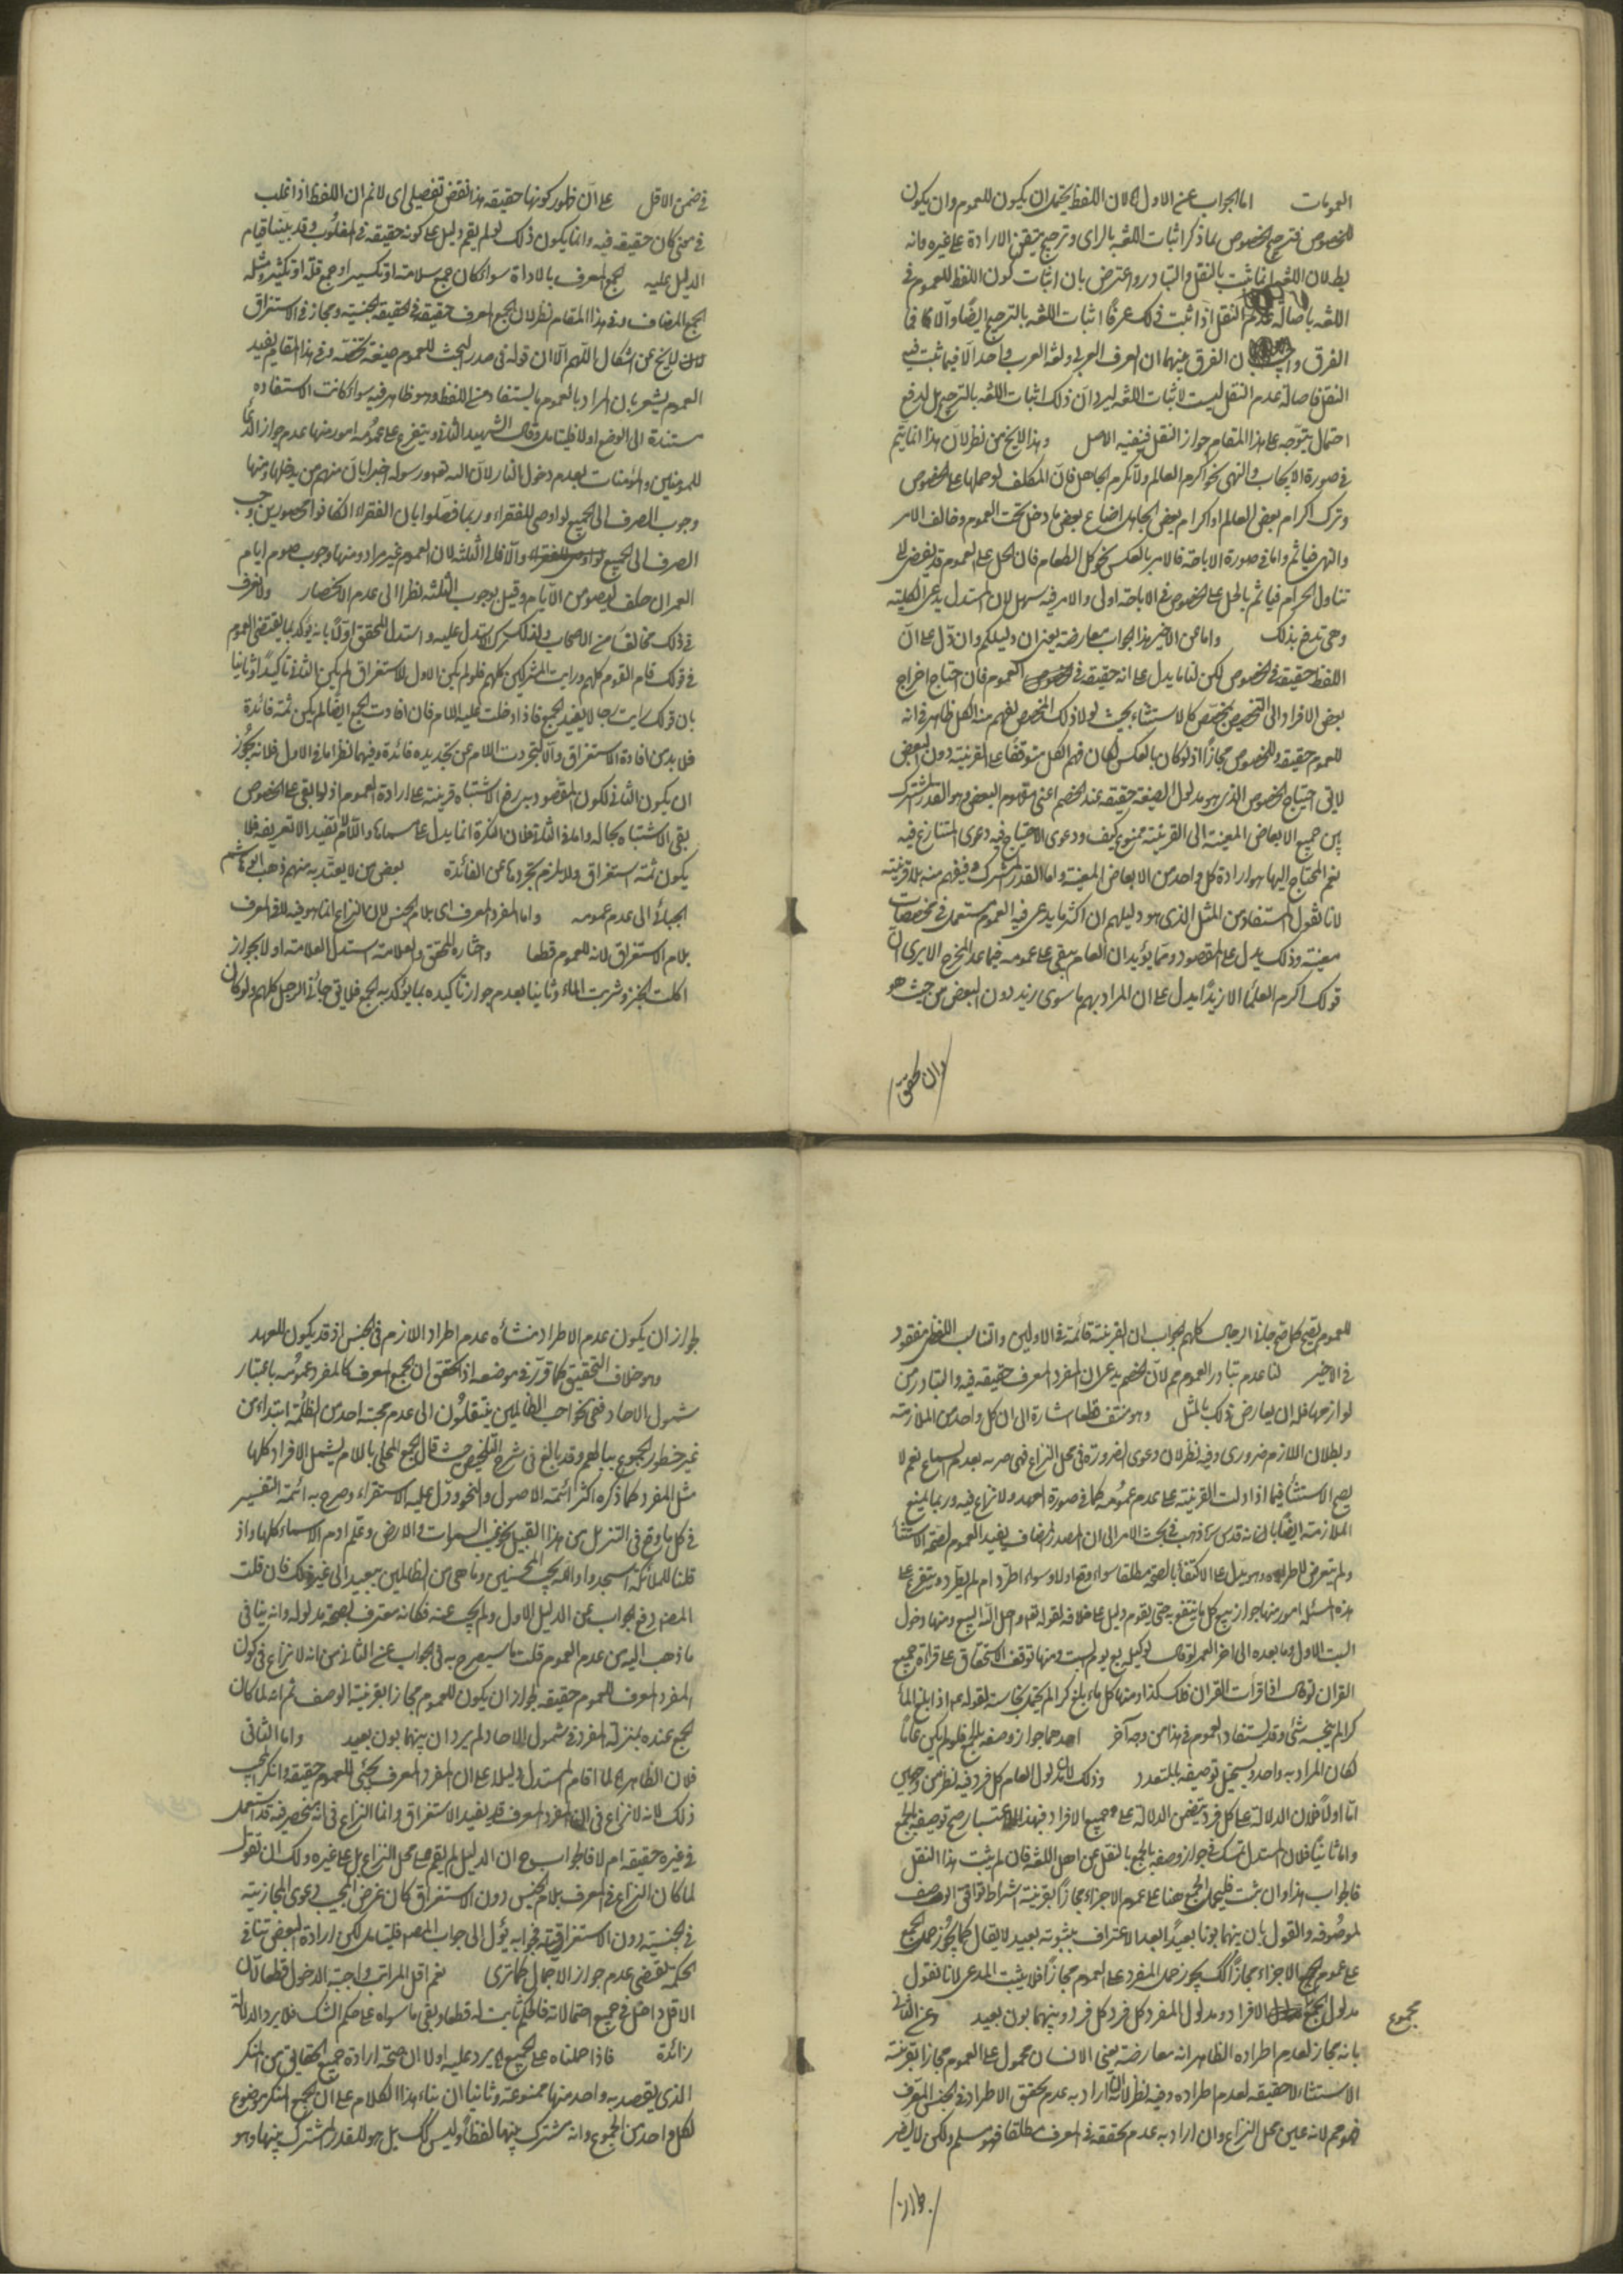 العمومات اما الجواب عن الاول فلان اللفظ يحتمل ان يكون للعموم وان يكون
للخصوص فترجيح الخصوص بما ذكر اثبات اللغة بالراى وترجيح متيقن الارادة على غيره وانه
بطلان اللغة انما تثبت بالنقل والتبادر واعترض بان اثبات كون اللفظ للعموم في
اللغة باصالة عدم النقل اذا ثبت ذلك عرفا اثبات اللغة بالترجيح ايضا والا فما
الفرق ان الفرق بينهما ان العرف العربي ولغة العرب واحد الا فيما ثبت فيه
النقل فاصالة عدم النقل ليست لاثبات اللغة ليرد ان ذلك اثبات اللغة بالترجيح بل لدفع
احتمال يتوجه على هذا المقام جواز النقل فينفيه الاصل وهذا لايخ من نظر لان هذا انما يتم
في صورة الايجاب والنهى نحو اكرم العالم ولا تكرم الجاهل فان المكلف لو حملها على الخصوص
وترك اكرام بعض العالم او اكرام بعض الجاهل اضاع بعض ما دخل تحت العموم وخالف الامر
والنهى فياثم واما في صورة الاباحة فالامر بالعكس نحو كل الطعام فان الحمل على العموم قد يفضى الى
تناول الحرام فياثم بالحمل على الخصوص في الاباحة اولى والامر فيه سهل لان المستدل يدعى الكلية
وهى تندفع بذلك واما عن الاخير هذا الجواب معارضة يعنى ان دليلكم وان دل على ان
اللفظ حقيقة في الخصوص لكن لنا ما يدل على انه حقيقة في العموم فان احتياج اخراج
بعض الافراد الى التخصيص بمخصص كالاستثناء بحيث لولا ذلك المخصص لفهم منه الكل ظاهر في انه
للعموم حقيقة وللخصوص مجازا اذ لو كان بالعكس لكان فهم الكل متوقفا على القرينة دون البعض
لايق احتياج الخصوص الذى هو مدلول الصيغة حقيقة عند الخصم اعنى مفهوم البعض وهو القدر المشترك
بين جميع الابعاض المعينة الى القرينة ممنوع كيف ودعوى الاحتياج فيه دعوى المتنازع فيه
نعم المحتاج اليها هو ارادة كل واحد من الابعاض المعينة واما القدر المشترك فيفهم منه بلا قرينة
لانا نقول المستفاد من المثل الذى هو دليلهم ان اكثر ما يدعى فيه العموم مستعمل في مخصصات
معينة وذلك يدل على المقصود ومما يؤيد ان العام يبقى على عمومه فيما عدا المخرج الا يرى ان
قولك اكرم العلماء الا زيدا يدل على ان المراد بهم ما سوى زيد دون البعض من حيث هو
وان تحقق
في ضمن الاقل على ان ظهور كونها حقيقة هذا نقض تفصيلى اى لا نم ان اللفظ اذا غلب
في معنى كان حقيقة فيه وانما يكون ذلك لو لم يقم دليل على كونه حقيقة في المغلوب وقد بينا قيام
الدليل عليه الجمع المعرف بالاداة سواء كان جمع سلامة او تكسير او جمع قلة او كثرة ومثله
الجمع المضاف وفي هذا المقام نظر لان الجمع المعرف حقيقة في الحقيقة الجنسية ومجاز في الاستغراق
لايخ عن اشكال اللهم الا ان قوله في صدر البحث للعموم صيغة تخصه وفي هذا المقام يفيد
العموم يشعر بان المراد بالعموم ما يستفاد من اللفظ وهو ظاهر فيه سواء كانت الاستفادة
مستندة الى الوضع اولا فليتامل وقال الشهيد الثاني ويتفرع على عمومه امور منها عدم جواز الدعاء
للمومنين والمؤمنات بعدم دخول النار لان الله تعه ورسوله اخبرا بان منهم من يدخلها ومنها
وجوب الصرف الى الجميع لو اوصى للفقراء وربما فصلوا بان الفقراء ان كانوا محصورين وجب
الصرف الى الجميع والا فالى الثلثة لان العموم غير مراد ومنها وجوب صوم ايام
العمر ان حلف ليصومن الايام وقيل بوجوب الثلثة نظرا الى عدم الانحصار ولا نعرف
في ذلك مخالفا من الاصحاب ولذلك ترك الاستدلال عليه واستدل المحقق اولا بانه يؤكد بما يقتضى العموم
في قولك قام القوم كلهم ورايت المشركين كلهم فلو لم يكن الاول للاستغراق لم يكن الثاني تاكيدا وثانيا
بان قولك رايت رجالا يفيد الجمع فاذا دخلت عليه اللام فان افادت الجمع ايضا لم يكن ثمة فائدة
فلا بد من افادة الاستغراق والا لتجردت اللام عن تجديده فائدة وفيهما نظر اما في الاول فلانه يجوز
ان يكون الثاني لكون المقصود به رفع الاشتباه قرينة على ارادة العموم اذ لو بقى على الخصوص
بقى الاشتباه بحاله واما في الثاني فلان النكرة انما يدل على مسماها واللام تفيد الا تعريفه فلا
يكون ثمة استغراق ولا يلزم تجردها عن الفائدة بعض من لا يعتد به منهم ذهب ابو هاشم
الجبائي الى عدم عمومه واما المفرد المعرف اى بلام الجنس لان النزاع انما هو فيه لا في المعرف
بلام الاستغراق لانه للعموم قطعا واختاره المحقق والعلامة استدل العلامة اولا بجواز
اكلت الخبز وشربت الماء وثانيا بعدم جواز تاكيده بما يؤكد به الجمع فلايق جائني الرجل كلهم ولو كان
للعموم لصح كما صح جائني الرجال كلهم الجواب ان القرينة قائمة في الاولين والتناسب اللفظى مفقود
في الاخير لنا عدم تبادر العموم مم لان الخصم يدعى ان المفرد المعرف حقيقة فيه والتبادر من
لوازمها فله ان يعارض ذلك بالمثل وهو منتف قطعا اشارة الى ان كل واحد من الملازمة
وبطلان اللازم ضرورى وفيه نظر لان دعوى الضرورة في محل النزاع فهى مريه بعدم السماع نعم لا
يصح الاستثناء فيما اذا دلت القرينة على عدم عمومه كما في صورة العهد ولا نزاع فيه وربما يمنع
الملازمة ايضا بانه قدس سره ذهب في بحث الامر الى ان المصدر المضاف يفيد العموم لصحة الاستثناء
ولم يتعرض للاطراد وهو يدل على الاكتفاء بالصحة مطلقا سواء وقع اولا وسواء اطرد ام لم يطرد ويتفرع على
هذه المسئلة امور منها جواز بيع كل ما ينتفع به حتى يقوم دليل على خلافه لقوله تعه واحل الله البيع ومنها دخول
السبت الاول وما بعده الى اخر العمر لو قال لوكيله بع يوم السبت ومنها توقف الاستحقاق على قراءة جميع
القران لو قال اذا قرات القران فلك كذا ومنها كل ماء بلغ كرا لم يحتمل نجاسة لقوله عم اذا بلغ الماء
كرا لم ينجسه شئ وقد يستفاد العموم في هذا من وجه آخر احدهما جواز وصفه بالجمع فلو لم يكن عاما
لكان المراد به واحد ويستحيل توصيفه بالمتعدد وذلك لان مدلول العام كل فرد فيه نظر من وجهين
اما اولا فلان الدلالة على كل فرد يتضمن الدلالة على جميع الافراد فبهذا الاعتبار صح توصيفه بالجمع
واما ثانيا فلان المستدل تمسك في جواز وصفه بالجمع بالنقل عن اهل اللغة فان لم يثبت هذا النقل
فالجواب هذا وان ثبت فليحمل الجمع هنا على عموم الاجزاء مجازا بقرينة اشتراط توافق الوصف
لموصوفه والقول بان بينهما بونا بعيدا بعد الاعتراف بثبوته بعيد لا يقال كما يجوز حمل الجمع
على عموم الاجزاء مجازا كك يجوز حمل المفرد على العموم مجازا فلا يثبت المدعى لانا نقول
مدلول الجمع الافراد ومدلول المفرد كل فرد كل فرد وبينهما بون بعيد وعن الثاني
مجموع
بانه مجاز لعدم اطراده الظاهر انه معارضة يعنى الانسان محمول على العموم مجازا بقرينة
الاستثناء لا حقيقة لعدم اطراده وفيه نظر لانه ان اراد به عدم تحقق الاطراد في الجنس المعرف
فهو مم لانه عين محل النزاع وان اراد به عدم تحققه في المعرف مطلقا فهو مسلم ولكن لا يضر
لجواز
لجواز ان يكون عدم الاطراد منشأه عدم اطراد اللازم في الجنس اذ قد يكون للعهد
وهو خلاف التحقيق كما قرر في موضعه اذ التحقق ان الجمع المعرف كالمفرد عمومه باعتبار
شمول الاحاد ففى نحو احب الظالمين ينتقلون الى عدم محبة احد من الظلمة ابتداء من
غير خطور المجموع ببالهم وقد بالغ في شرح التلخيص حيث قال الجمع المحلى باللام يشمل الافراد كلها
مثل المفرد كما ذكره اكثر ائمة الاصول والنحو ودل عليه الاستقراء وصرح به ائمة التفسير
في كل ما وقع في التنزيل من هذا القبيل نحو غيب السموات والارض وعلم ادم الاسماء كلها واذ
قلنا للملائكة اسجدوا والله يحب المحسنين وما هى من الظالمين ببعيد الى غير ذلك فان قلت
المصنف دفع الجواب عن الدليل الاول ولم يجب عنه فكانه معترف بصحة مدلوله وانه ينافي
ما ذهب اليه من عدم العموم قلت ما سيصرح به في الجواب عن الثاني من انه لا نزاع في كون
المفرد المعرف للعموم حقيقة لجواز ان يكون للعموم مجازا بقرينة الوصف ثم انه لما كان
الجمع عنده بمنزلة المفرد في شمول الاحاد لم يرد ان بينهما بون بعيد واما الثاني
فلان الظاهر انه لما اقام المستدل دليلا على ان المفرد المعرف يجئ للعموم حقيقة وانكر المجيب
ذلك لانه لا نزاع في ان المفرد المعرف قد يفيد الاستغراق وانما النزاع في انه منحصر فيه قد يستعمل
في غيره حقيقة ام لا فالجواب ح ان الدليل لم يقم على محل النزاع بل على غيره ولك ان تقول
لما كان النزاع في المعرف بلام الجنس دون الاستغراق كان غرض المجيب دعوى المجازية
في الجنسية دون الاستغراقية فجوابه يؤل الى جواب المصنف فليتامل لكن ارادة البعض تنافي
الحكمة يقتضى عدم جواز الاجمال كما ترى نعم اقل المراتب واجبة الدخول قطعا لان
الاقل داخل في جميع احتمالاته فالحكم ثابت له قطعا ويبقى ما سواه على حكم الشك فلا يرد الدلالة
زائدة فاذا حملناه على الجميع يرد عليه اولا ان صحة ارادة جميع الحقايق من المنكر
الذى يقصد به واحد منها ممنوعة وثانيا ان بناء هذا الكلام على ان الجمع المنكر موضوع
لكل واحد من المجموع وانه مشترك بينها لفظا وليس كك بل هو للقدر المشترك بينها وهو